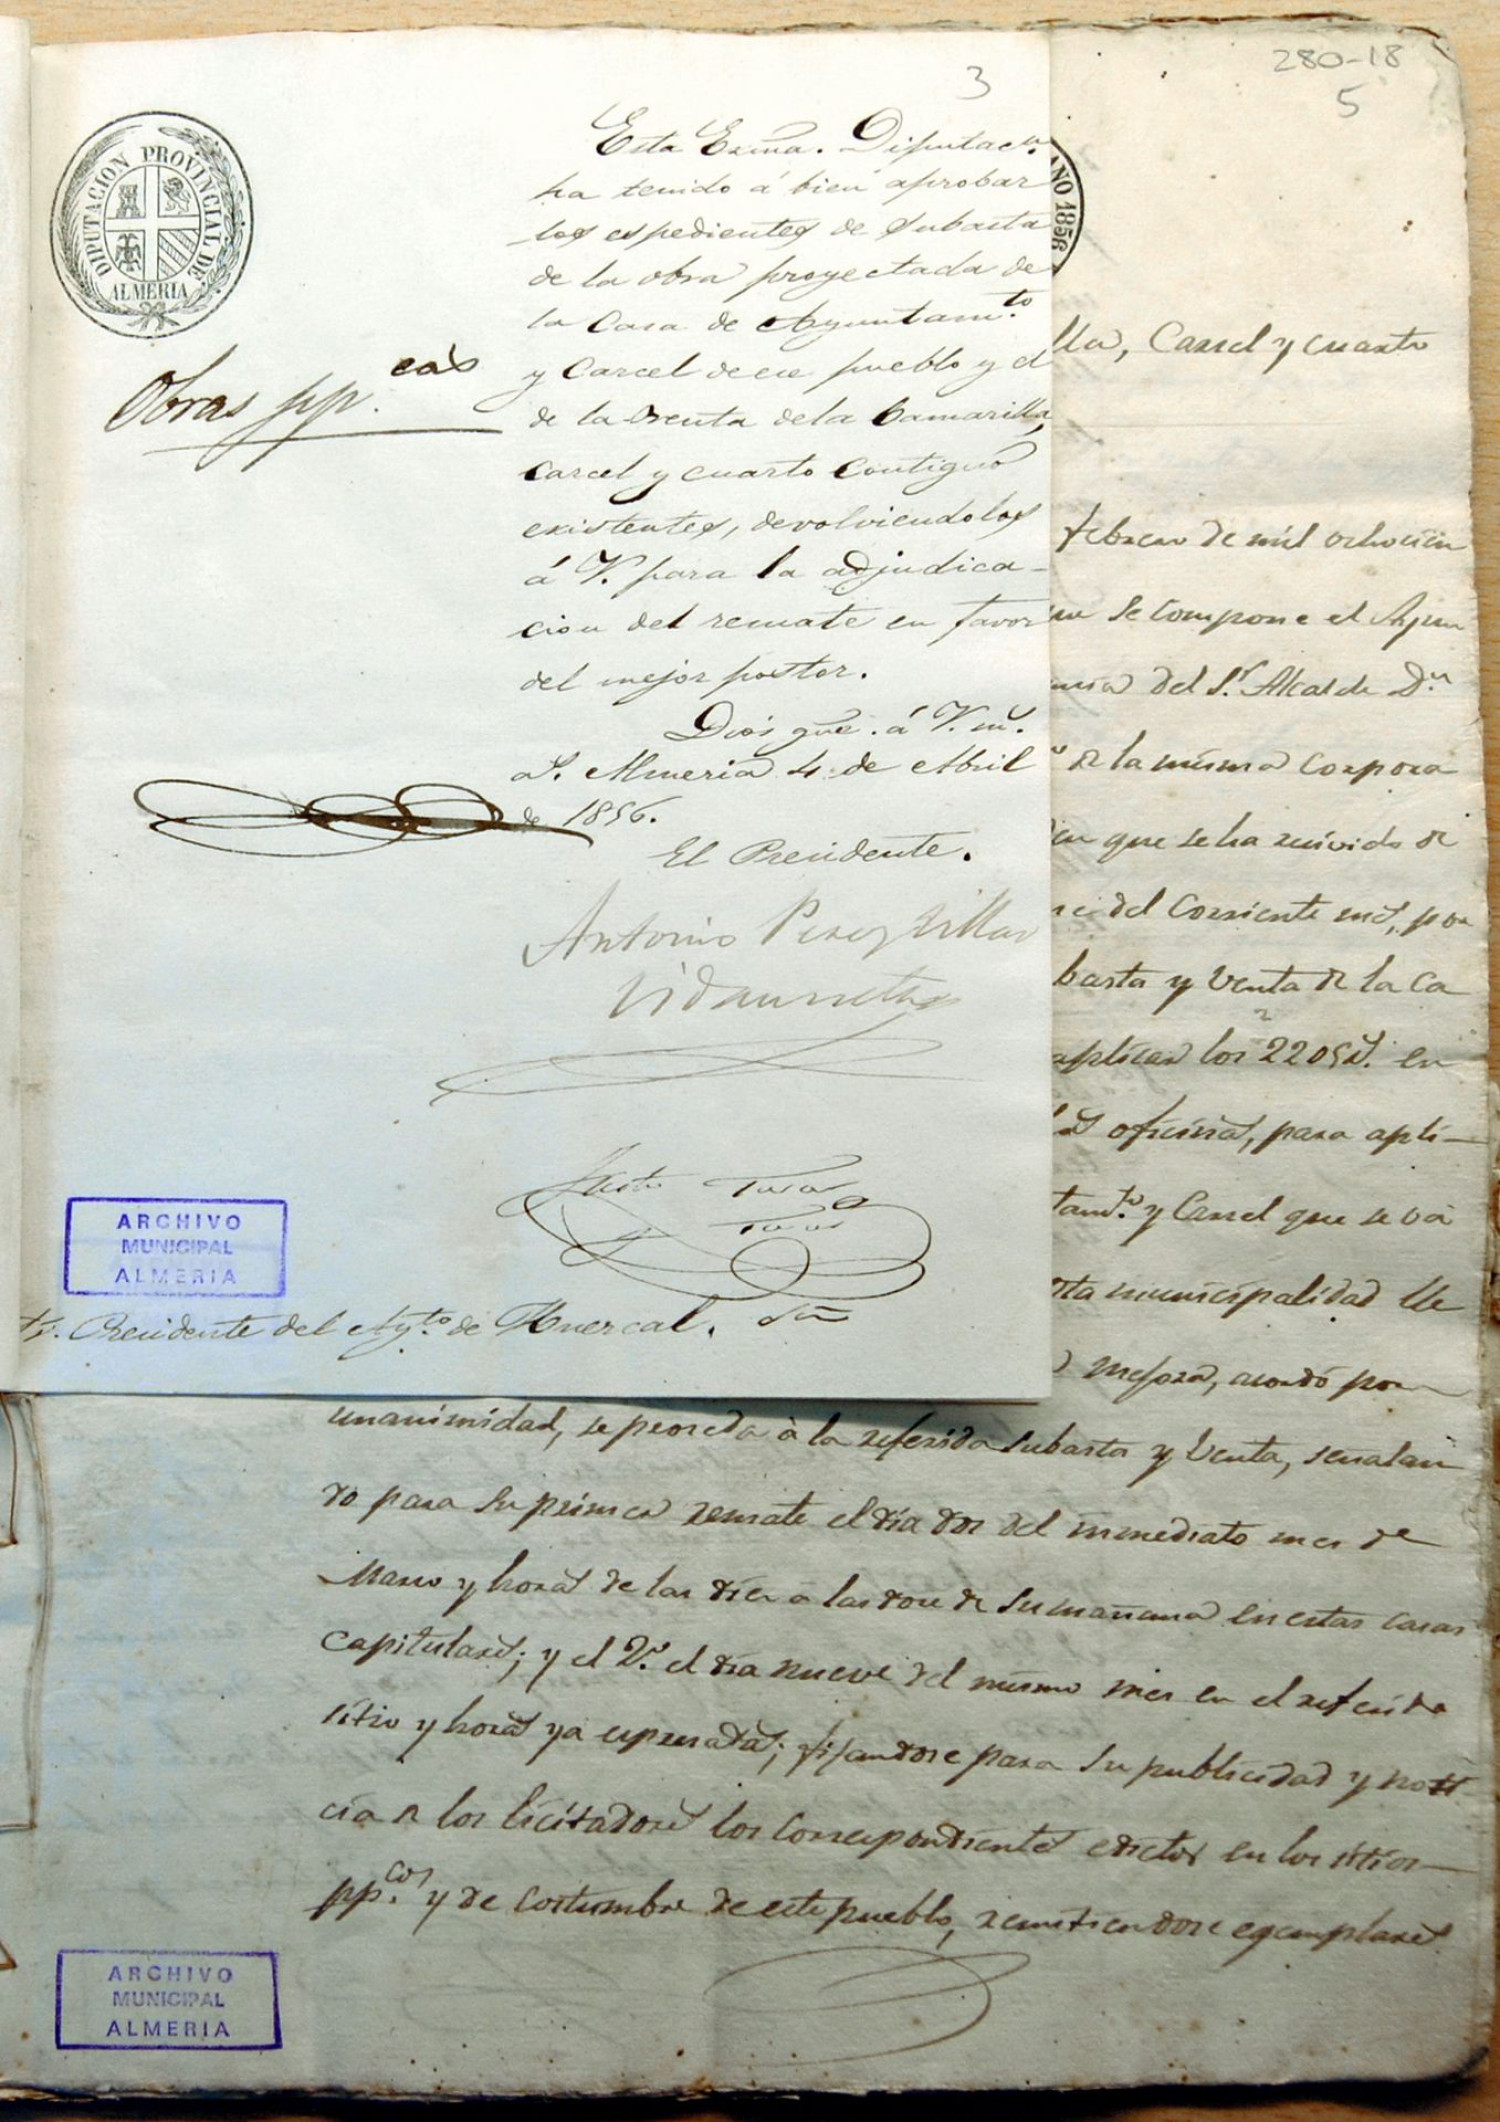 280-18
5
3
DIPUTACION PROVINCIAL DE ALMERIA
AÑO 1856
Obras pp.cas
Esta Exma. Diputacn.
ha tenido á bien aprobar
los espedientes de subasta
de la obra proyectada de
la Casa de Ayuntamto.
y Carcel de ese pueblo y el
de la venta dela Camarilla,
carcel y cuarto contiguo
existentes, devolviendolos
á V. para la adjudica-
cion del remate en favor
del mejor postor.
Dios gue. á V. m.
as. Almeria 4 de Abril
de 1856.
El Presidente.
Antonio Perez Villar
Vidaurreta
Tovar
ARCHIVO
MUNICIPAL
ALMERIA
Presidente del Ayto. de Huercal.
lla, Carcel y cuarto
febrero de mil ochocien
que se compone el Ayun
del Sr. Alcalde Dn
de la misma Corpora
que se ha recivido de
del corriente mes, por
basta y venta de la Ca
aplican los 2205 en
oficinas, para apli-
tamto. y Carcel que se vá
sta municipalidad de
mejora, acordó por
unanimidad, se proceda à la referida subasta y venta, señalan
do para su primer remate el dia dos del inmediato mes de
Marzo y horas de las diez a las doce de su mañana en estas casas
capitulares; y el 2º. el dia nueve del mismo mes en el referido
sitio y horas ya espresadas; fijandose para su publicidad y noti
cia a los licitadores los correspondientes edictos en los sitios
pp.cos y de costumbre de este pueblo, remitiendose egemplares
ARCHIVO
MUNICIPAL
ALMERIA